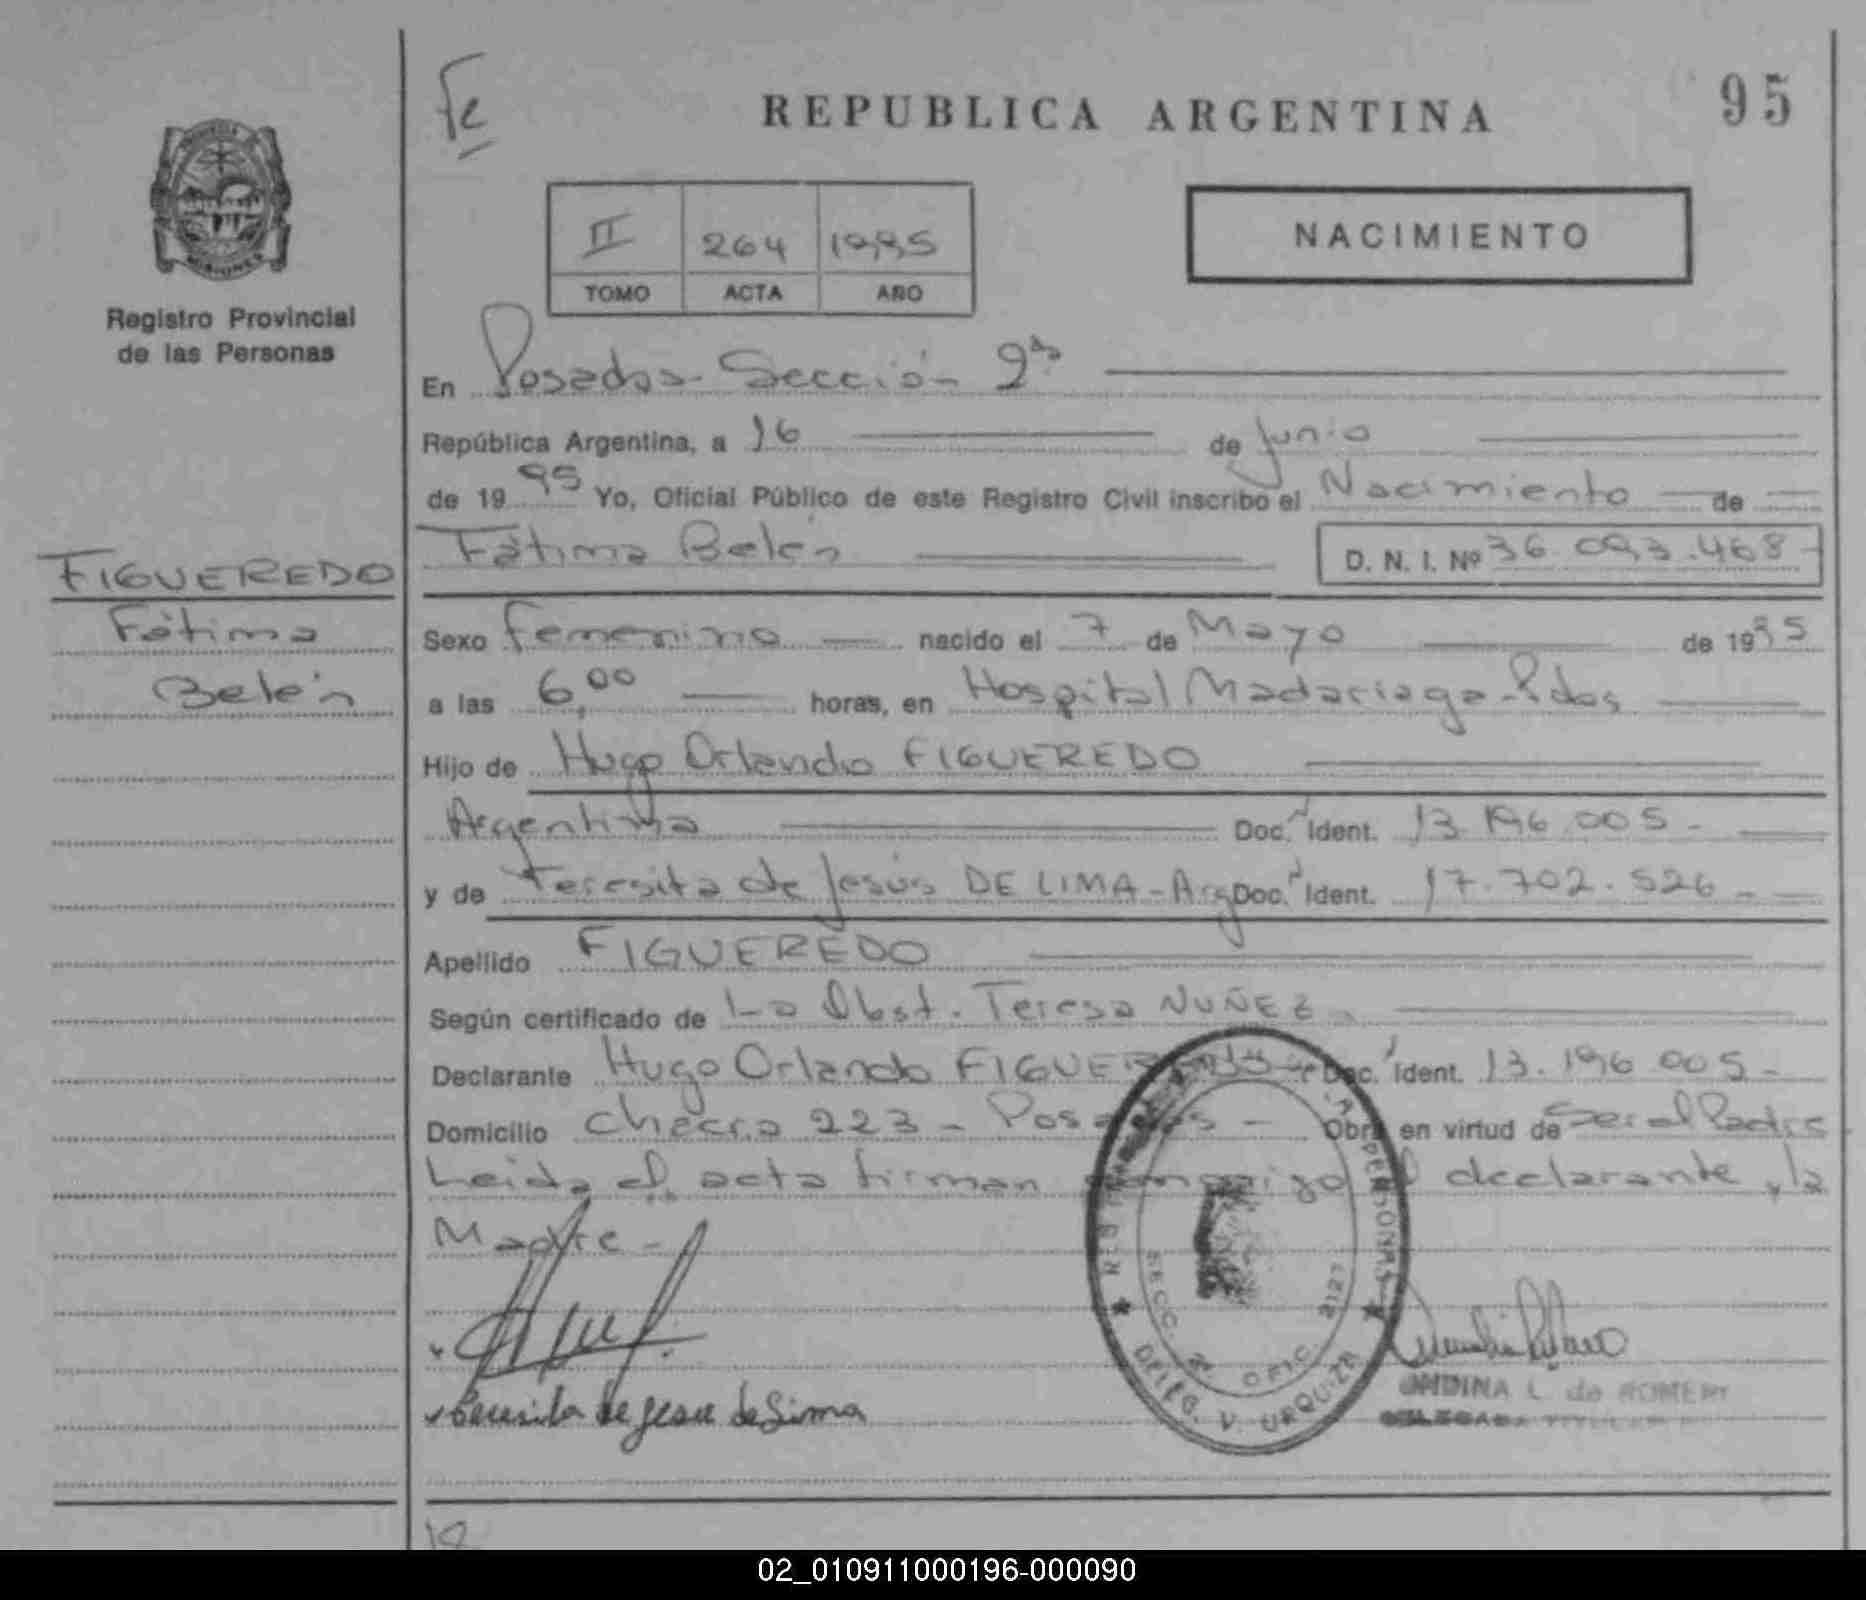 Fe
REPUBLICA ARGENTINA
95
MISIONES
Registro Provincial
de las Personas
II 264 1995
TOMO ACTA AÑO
NACIMIENTO
En Posadas Sección 2ª
República Argentina, a 16 de Junio
de 1995 Yo, Oficial Público de este Registro Civil inscribo el Nacimiento de
Fátima Belén D. N. I. Nº 36.093.468
FIGUEREDO
Fátima
Belén
Sexo Femenino nacido el 7 de Mayo de 1995
a las 6,00 horas, en Hospital Madariaga-Pdas
Hijo de Hugo Orlando FIGUEREDO
Argentina Doc. Ident. 13.196.005-
y de Teresita de Jesús DE LIMA-Arg Doc. Ident. 17.702.526-
Apellido FIGUEREDO
Según certificado de La Obst. Teresa NUÑEZ
Declarante Hugo Orlando FIGUEREDO Doc. Ident. 13.196.005-
Domicilio Chacra 223 - Posadas - Obra en virtud de Ser el Padre
Leida el acta firman conmigo el declarante y la
Madre-
PERSONAS
SECC. 2ª OFIC. 2127
DPTO. V. URQUIZA
Teresita de Jesus de Lima
ONDINA L. de ROMERO
DELEGADA TITULAR
02_010911000196-000090